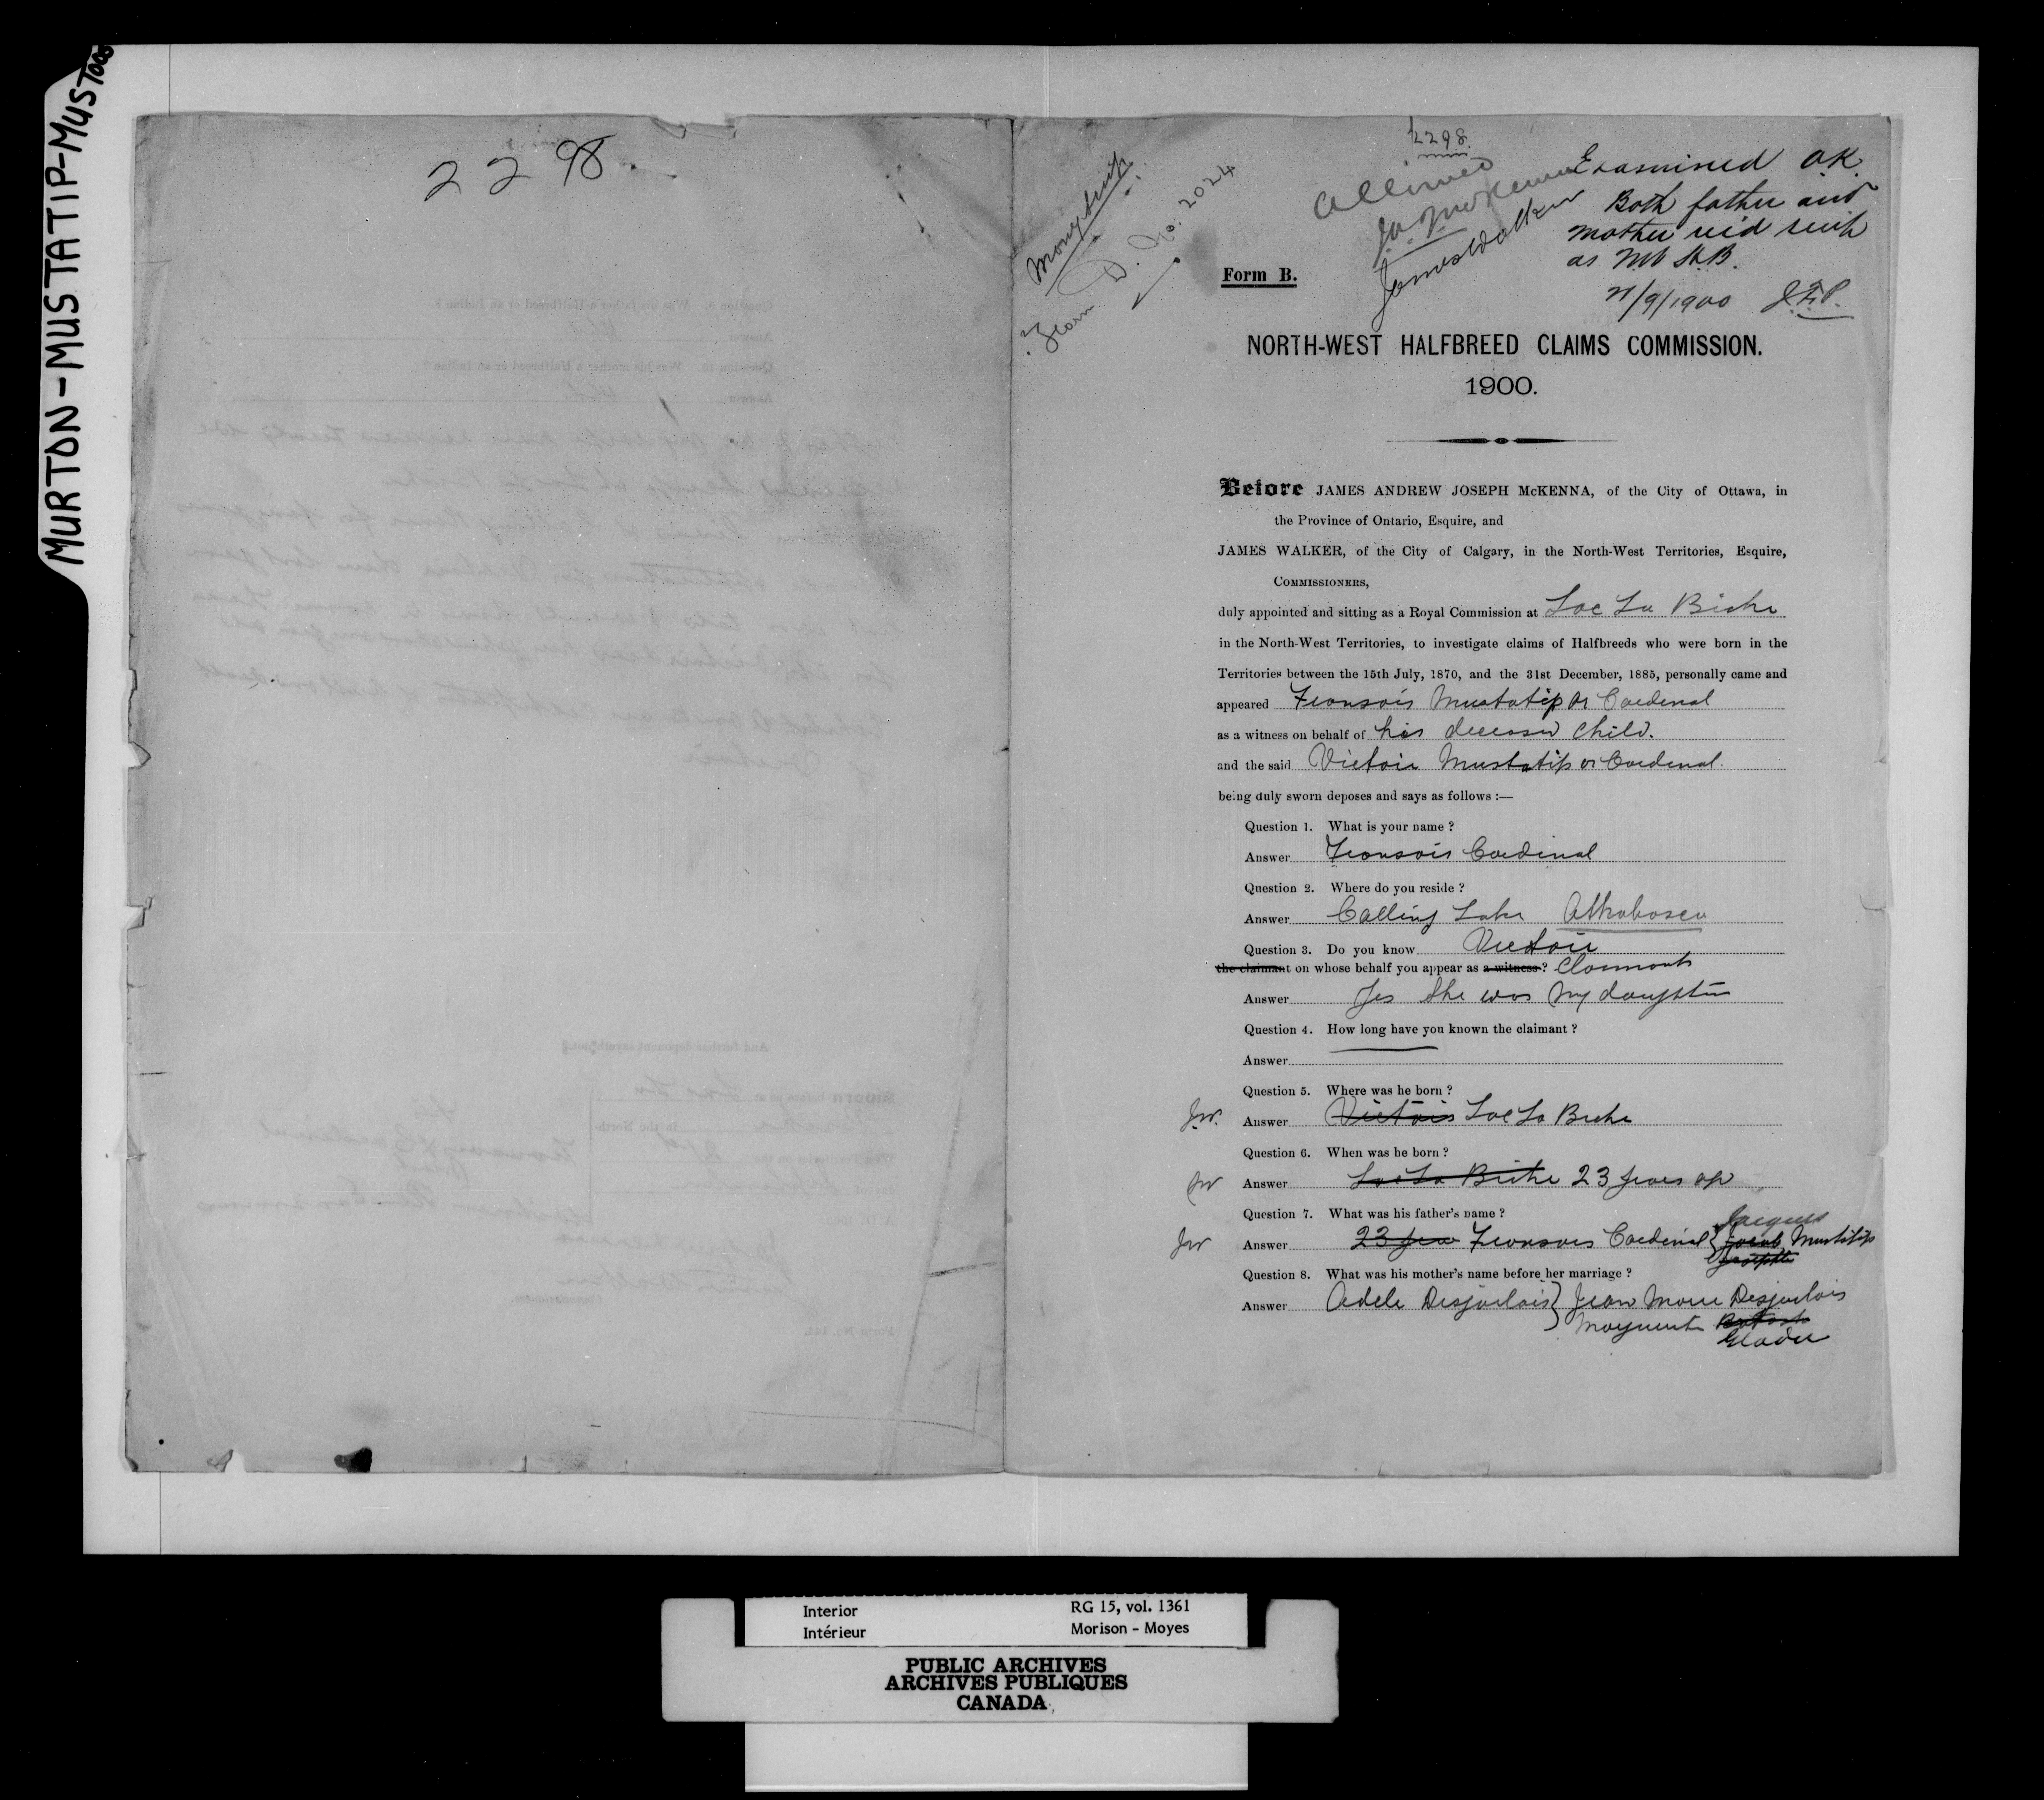 MURTON-MUSTATIP-MUSTOOS
2298.
2298.
Money Scrip
D. No. 2024
Allowed
J A J McKenna
James Walker
Examined O.K.
Both father and
mother rec'd scrip
as N.W. H.B.
21/9/1900 J.E.P.
Form B.
NORTH-WEST HALFBREED CLAIMS COMMISSION.
1900.
Before JAMES ANDREW JOSEPH McKENNA, of the City of Ottawa, in
the Province of Ontario, Esquire, and
JAMES WALKER, of the City of Calgary, in the North-West Territories, Esquire,
COMMISSIONERS,
duly appointed and sitting as a Royal Commission at Lac La Biche
in the North-West Territories, to investigate claims of Halfbreeds who were born in the
Territories between the 15th July, 1870, and the 31st December, 1885, personally came and
appeared Fransois Mustatip or Cardinal
as a witness on behalf of his deceased child.
and the said Victoir Mustatip or Cardinal.
being duly sworn deposes and says as follows :—
Question 1. What is your name ?
Answer Fransois Cardinal
Question 2. Where do you reside ?
Answer Calling Lake Athabasca
Question 3. Do you know Victoir
the claimant on whose behalf you appear as a witness ? Claimant
Answer Yes She was my daughter
Question 4. How long have you known the claimant ?
Answer
Question 5. Where was he born ?
J.W. Answer Victoir Lac La Biche
Question 6. When was he born ?
JW Answer Lac La Biche 23 years ago
Question 7. What was his father's name ?
Jacques
JW Answer 23 years Fransois Cardinal { Jacob Mustatip
Josephte
Question 8. What was his mother's name before her marriage ?
Answer Adele Desjarlais } Jean Marie Desjarlais
Marguerite Batoche
Gladu
Interior
Intérieur
RG 15, vol. 1361
Morison - Moyes
PUBLIC ARCHIVES
ARCHIVES PUBLIQUES
CANADA